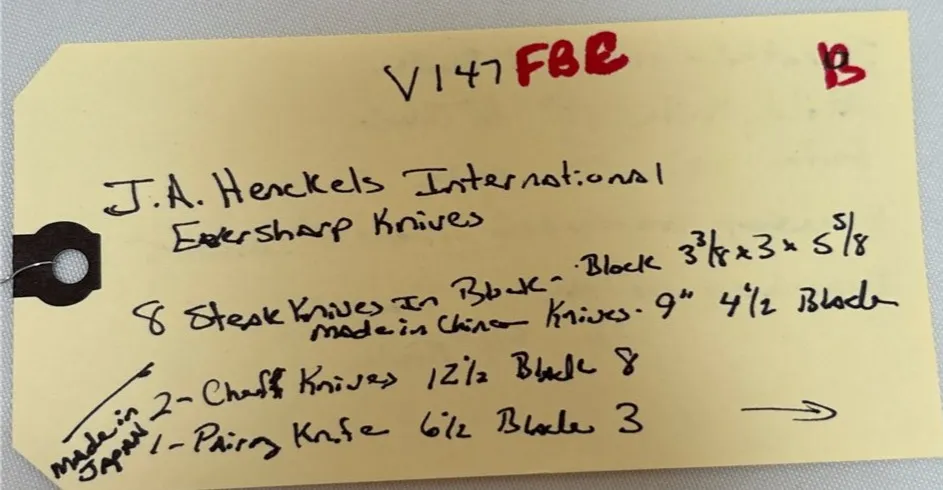 V147 FBR B
J.A. Henckels International
Eversharp Knives
8 Steak Knives In Block - Block 3 3/8 x 3 x 5 5/8
made in China Knives - 9" 4 1/2 Blade
2 - Cheff Knives 12 1/2 Blade 8
1 - Pairing Knife 6 1/2 Blade 3 →
Made in
JAPAN